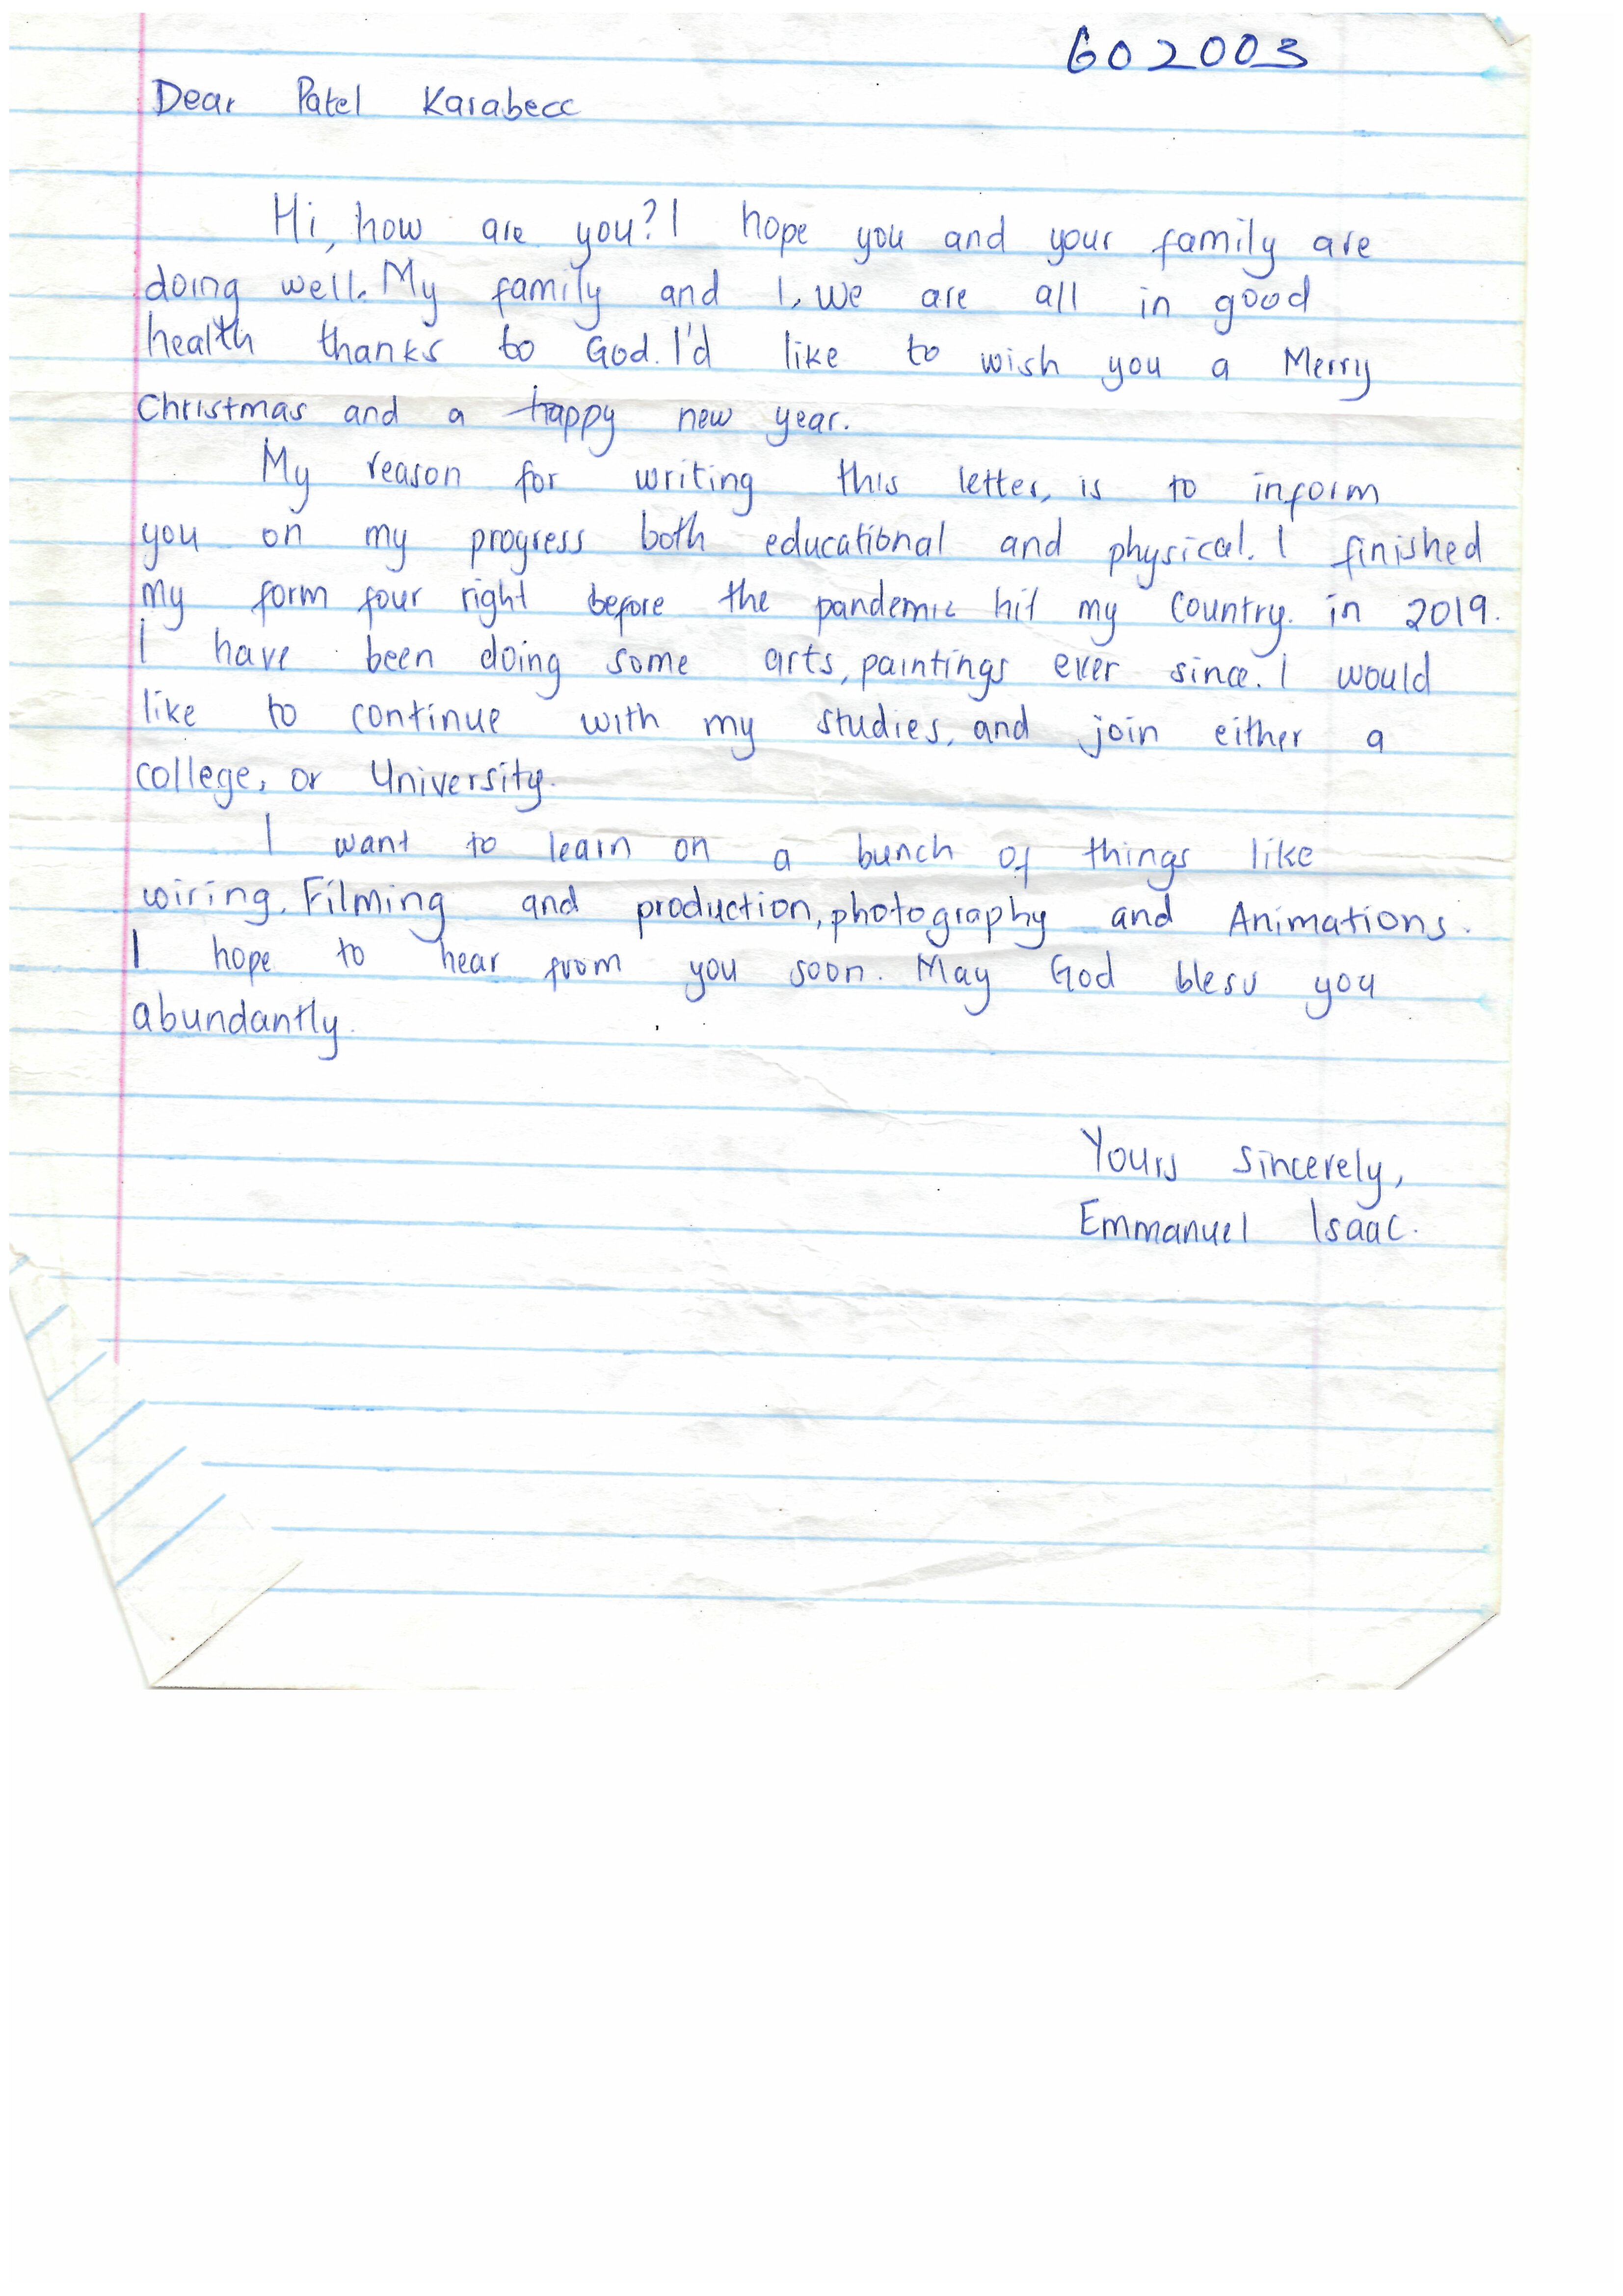 602003
Dear Patel Karabecc
Hi, how are you? I hope you and your family are
doing well. My family and I, we are all in good
health thanks to God. I'd like to wish you a Merry
Christmas and a happy new year.
My reason for writing this letter, is to inform
you on my progress both educational and physical. I finished
my form four right before the pandemic hit my country. in 2019.
I have been doing some arts, paintings ever since. I would
like to continue with my studies, and join either a
college, or University.
I want to learn on a bunch of things like
wiring, Filming and production, photography and Animations.
I hope to hear from you soon. May God bless you
abundantly.
Yours sincerely,
Emmanuel Isaac.